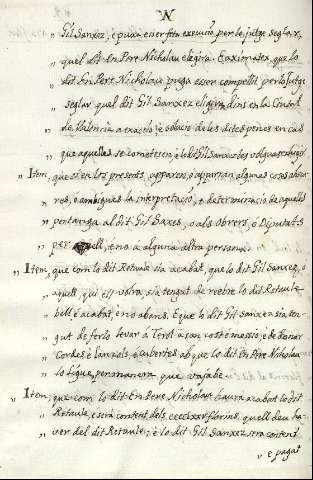 N
„ Gil Sanxez, è puxa esser feta execució per lo jutge seglar,
„ quel dit En Pere Nicholau elegirà. E aximatex que lo
„ dit En Pere Nicholau puga esser compellit per lo jutge
„ seglar quel dit Gil Sanxez eligira dins en la Ciutat
„ de Valencia a exacció, è solució de les dites penes en cas
„ que aquelles se cometesen, è lo dit Gil Sanxez les volgues
„ Item, que si en los presents apparen, ò apparran algunes coses obscu-
„ res, ò ambigues la interpretació, e determinació de aquelles
„ pertanga al dit Gil Saxes, o als obrers, ò Diputats
„ per aquell, è no a alguna altra persona.
„ Item, que com lo dit Retaule sia acabat, que lo dit Gil Sanxez, ò
„ aquell, qui ell volra, sia tengut de rebre lo dit Retaule
„ bell è acabat, e no abans. E que lo dit Gil Sanxez sia ten-
„ gut de ferlo levar à Terol a son cost è messió, è de donar
„ Cordes è lansols, è cubertes ab que lo dit En Pere Nicholau
„ lo ligue, per manera que vaja be.
„ Item, que com lo dit En Pere Nicholau haurà acabat lo dit
„ Retaule, e serà content dels florins, quell deu ha-
„ ver del dit Retaule; è lo dit Gil Sanxez sera content
„ e pagat